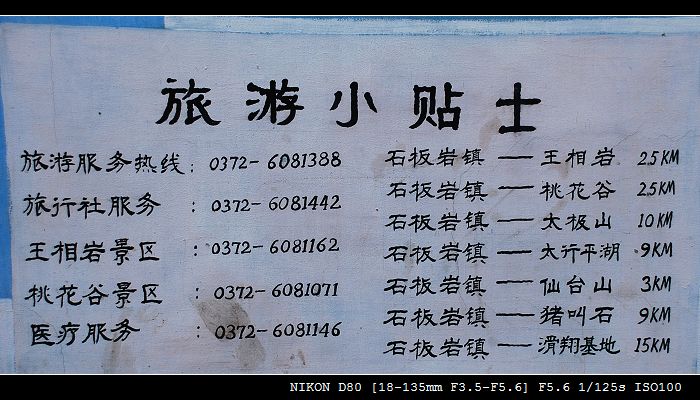 旅游小贴士
旅游服务热线：0372-6081388
旅行社服务：0372-6081442
王相岩景区：0372-6081162
桃花谷景区：0372-6081071
医疗服务：0372-6081146
石板岩镇——王相岩 25KM
石板岩镇——桃花谷 25KM
石板岩镇——太极山 10KM
石板岩镇——太行平湖 9KM
石板岩镇——仙台山 3KM
石板岩镇——猪叫石 9KM
石板岩镇——滑翔基地 15KM
NIKON D80 [18-135mm F3.5-F5.6] F5.6 1/125s ISO100